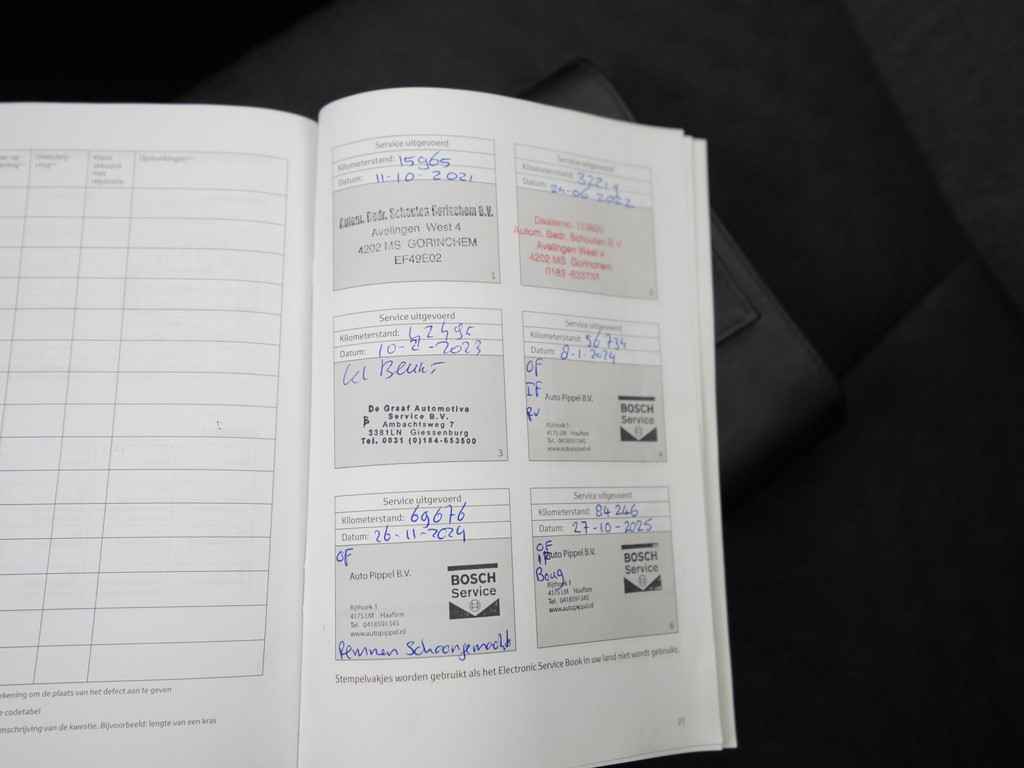 Opmerkingen
ekening om de plaats van het defect aan te geven
e codetabel
mschrijving van de kwestie. Bijvoorbeeld: lengte van een kras
Service uitgevoerd
Kilometerstand: 15965
Datum: 11-10-2021
Autom. Bedr. Schouten Gorinchem B.V.
Avelingen West 4
4202 MS GORINCHEM
EF49E02
1
Service uitgevoerd
Kilometerstand:
Datum: 24-06-2022
Autom. Bedr. Schouten B.V.
Avelingen West 4
4202 MS Gorinchem
Service uitgevoerd
Kilometerstand: 42495
Datum: 10-2-2023
De Graaf Automotive
Service B.V.
Ambachtsweg 7
3381LN Giessenburg
Tel. 0031 (0)184-653500
3
Service uitgevoerd
Kilometerstand: 56734
Datum: 8-1-2024
OF
IF
Auto Pippel B.V.
BOSCH
Service
Rijthoek 1
4175 LM Haaften
Tel. 0418591345
www.autopippel.nl
4
Service uitgevoerd
Kilometerstand: 69676
Datum: 26-11-2024
OF
Auto Pippel B.V.
BOSCH
Service
Rijthoek 1
4175 LM Haaften
Tel. 0418591345
www.autopippel.nl
Remmen Schoongemaakt
Service uitgevoerd
Kilometerstand: 84246
Datum: 27-10-2025
OF
IF
Auto Pippel B.V.
Boug
BOSCH
Service
Rijthoek 1
4175 LM Haaften
Tel. 0418591345
www.autopippel.nl
6
Stempelvakjes worden gebruikt als het Electronic Service Book in uw land niet wordt gebruikt.